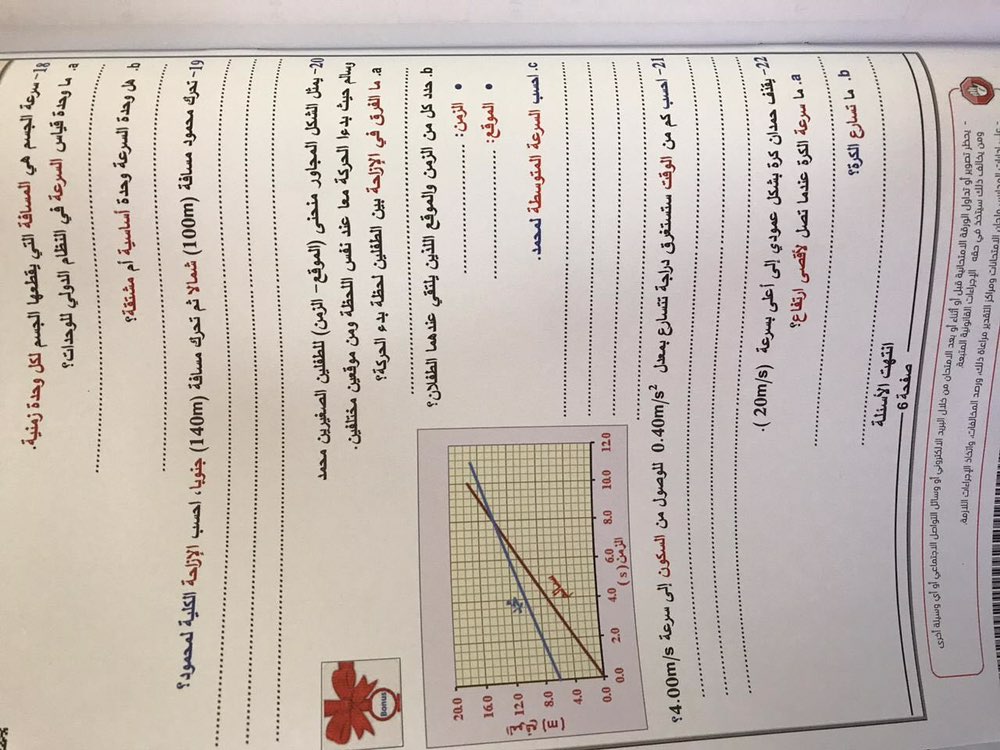 18- سرعة الجسم هي المسافة التي يقطعها الجسم لكل وحدة زمنية.
a. ما وحدة قياس السرعة في النظام الدولي للوحدات؟
b. هل وحدة السرعة وحدة أساسية أم مشتقة؟
19- تحرك محمود مسافة (100m) شمالا ثم تحرك مسافة (140m) جنوبا، احسب الإزاحة الكلية لمحمود؟
Bonus
20- يمثل الشكل المجاور منحنى (الموقع – الزمن) للطفلين الصغيرين محمد
وسالم حيث بدءا الحركة معا عند نفس اللحظة ومن موقعين مختلفين.
a. ما الفرق في الإزاحة بين الطفلين لحظة بدء الحركة؟
b. حدد كل من الزمن والموقع اللذين يلتقي عندهما الطفلان؟
• الزمن:
• الموقع:
c. احسب السرعة المتوسطة لمحمد.
20.0
16.0
12.0
8.0
4.0
0.0
0.0 2.0 4.0 6.0 8.0 10.0 12.0
الزمن (s)
(m)
محمد
سالم
21- احسب كم من الوقت ستستغرق دراجة تتسارع بمعدل 0.40m/s² للوصول من السكون إلى سرعة 4.00m/s؟
22- يقذف حمدان كرة بشكل عمودي إلى أعلى بسرعة (20m/s).
a. ما سرعة الكرة عندما تصل لأقصى ارتفاع؟
b. ما تسارع الكرة؟
انتهت الأسئلة
صفحة 6
- يحظر تصوير أو تداول الورقة الامتحانية قبل أو أثناء أو بعد الامتحان من خلال البريد الالكتروني أو وسائل التواصل الاجتماعي أو أي وسيلة أخرى
ومن يخالف ذلك ستتخذ في حقه الإجراءات القانونية المتبعة.